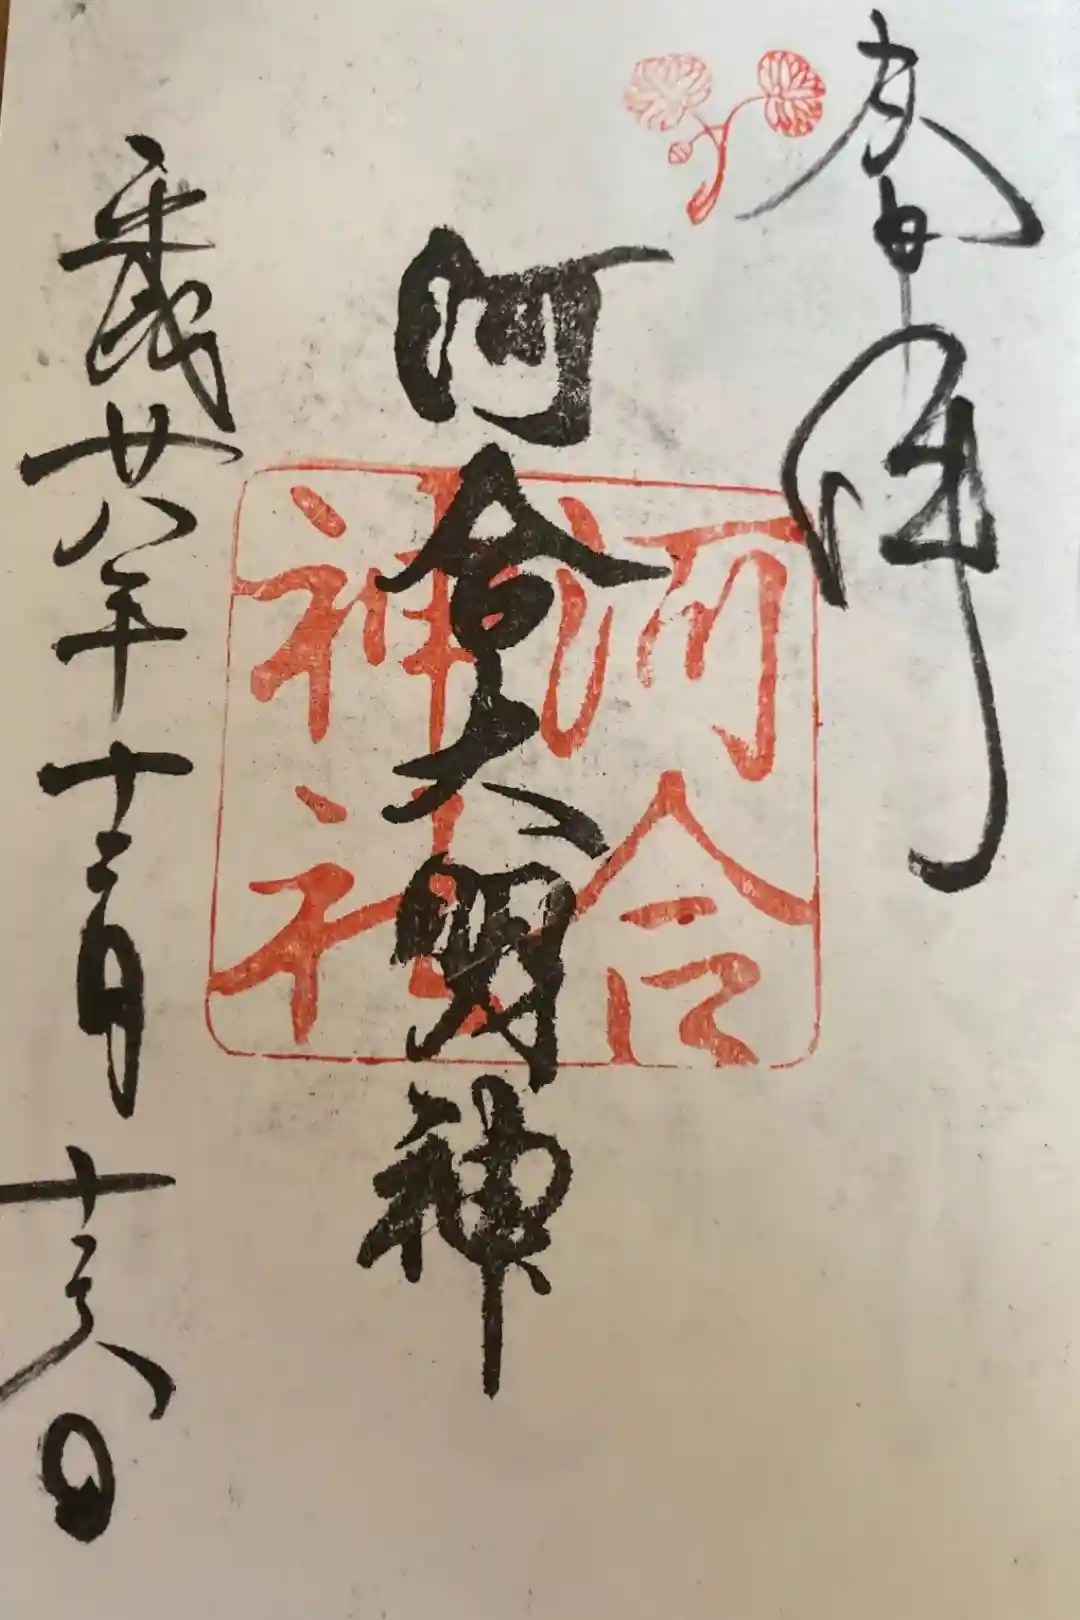 奉拝
河合大明神
河合
神社
平成廿八年十二月十六日